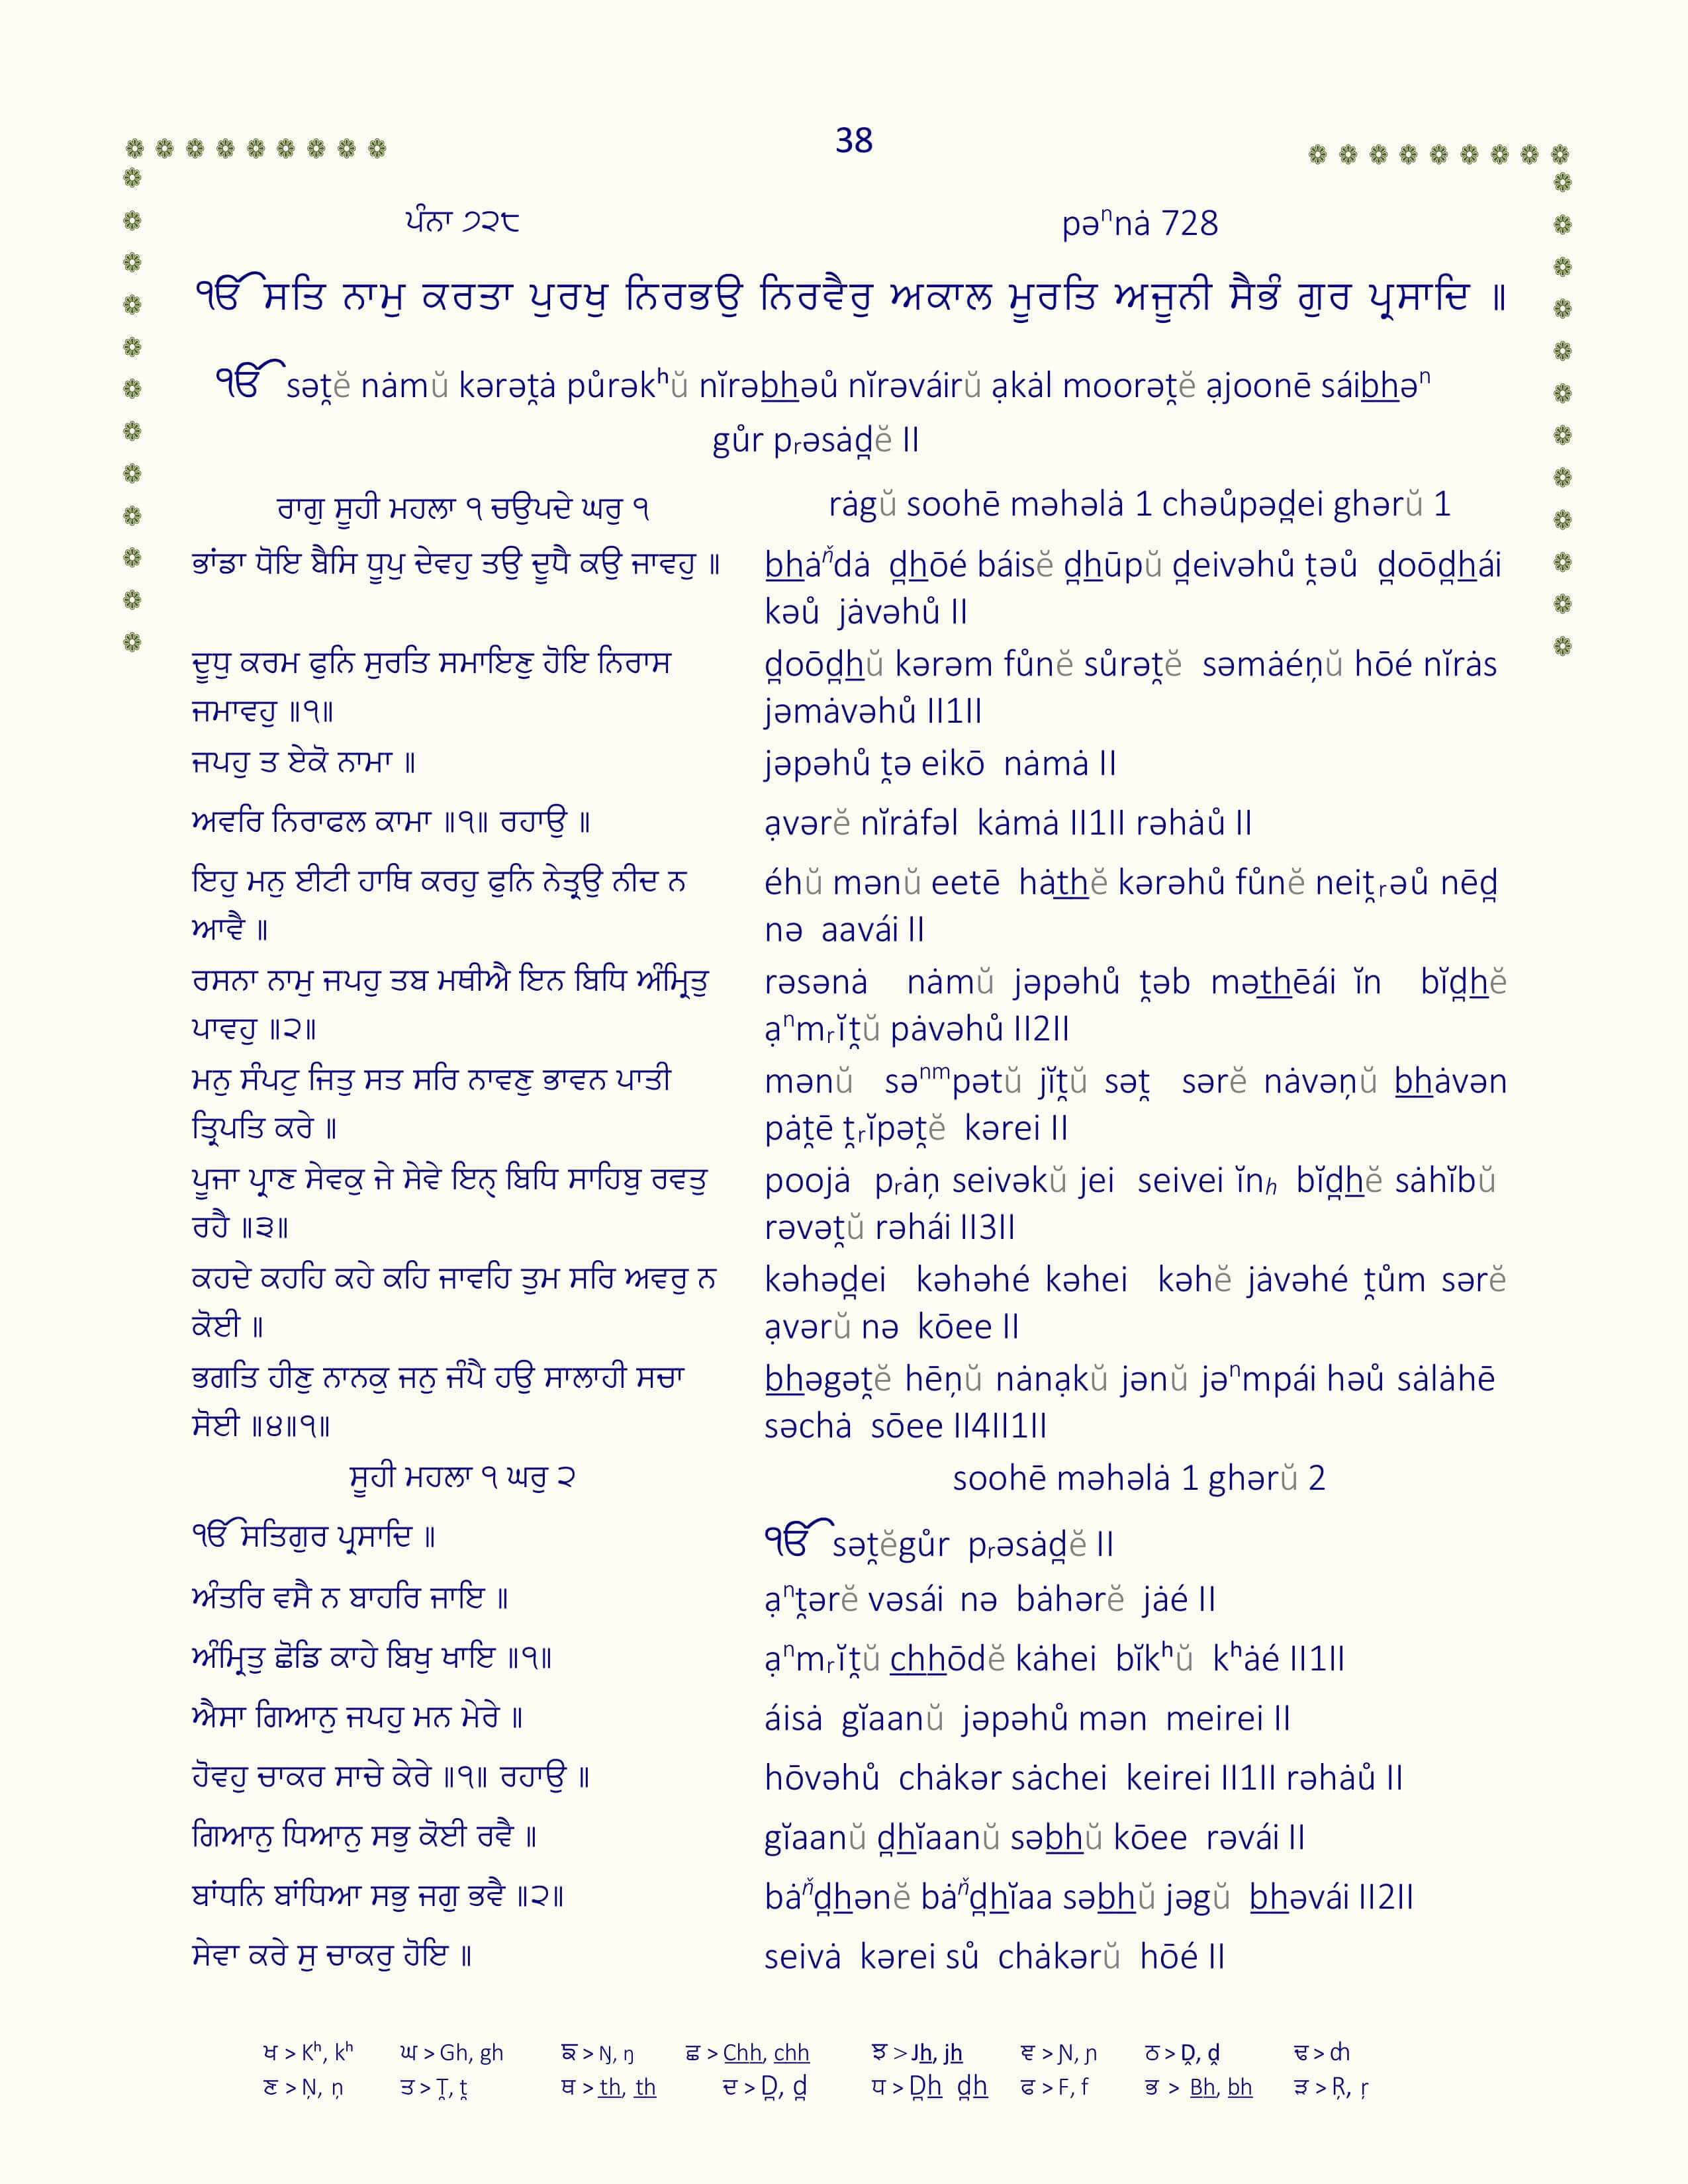 38
ਪੰਨਾ ੭੨੮
pəⁿnȧ 728
ੴ ਸਤਿ ਨਾਮੁ ਕਰਤਾ ਪੁਰਖੁ ਨਿਰਭਉ ਨਿਰਵੈਰੁ ਅਕਾਲ ਮੂਰਤਿ ਅਜੂਨੀ ਸੈਭੰ ਗੁਰ ਪ੍ਰਸਾਦਿ ॥
ੴ sət̯ĕ nȧmŭ kərət̯ȧ půrəkʰŭ nĭrəb͟h͟əů nĭrəváirŭ ạkȧl moorət̯ĕ ạjoonē sáib͟h͟əⁿ
gůr pᵣəsȧd̯ĕ II
ਰਾਗੁ ਸੂਹੀ ਮਹਲਾ ੧ ਚਉਪਦੇ ਘਰੁ ੧
rȧgŭ soohē məhəlȧ 1 chəůpəd̯ei ghərŭ 1
ਭਾਂਡਾ ਧੋਇ ਬੈਸਿ ਧੂਪੁ ਦੇਵਹੁ ਤਉ ਦੂਧੈ ਕਉ ਜਾਵਹੁ ॥
b͟h͟ȧᵑ̌dȧ d̯h͟ōé báisĕ d̯h͟ūpŭ d̯eivəhů t̯əů d̯oōd̯h͟ái
kəů jȧvəhů II
ਦੂਧੁ ਕਰਮ ਫੁਨਿ ਸੁਰਤਿ ਸਮਾਇਣੁ ਹੋਇ ਨਿਰਾਸ
ਜਮਾਵਹੁ ॥੧॥
d̯oōd̯h͟ŭ kərəm fůnĕ sůrət̯ĕ səmȧéṇŭ hōé nĭrȧs
jəmȧvəhů II1II
ਜਪਹੁ ਤ ਏਕੋ ਨਾਮਾ ॥
jəpəhů t̯ə eikō nȧmȧ II
ਅਵਰਿ ਨਿਰਾਫਲ ਕਾਮਾ ॥੧॥ ਰਹਾਉ ॥
ạvərĕ nĭrȧfəl kȧmȧ II1II rəhȧů II
ਇਹੁ ਮਨੁ ਈਟੀ ਹਾਥਿ ਕਰਹੁ ਫੁਨਿ ਨੇਤ੍ਰਉ ਨੀਦ ਨ
ਆਵੈ ॥
éhŭ mənŭ eetē hȧt͟h͟ĕ kərəhů fůnĕ neit̯ᵣəů nēd̯
nə aavái II
ਰਸਨਾ ਨਾਮੁ ਜਪਹੁ ਤਬ ਮਥੀਐ ਇਨ ਬਿਧਿ ਅੰਮ੍ਰਿਤੁ
ਪਾਵਹੁ ॥੨॥
rəsənȧ nȧmŭ jəpəhů t̯əb mət͟h͟ēái ĭn bĭd̯h͟ĕ
ạⁿmᵣĭt̯ŭ pȧvəhů II2II
ਮਨੁ ਸੰਪਟੁ ਜਿਤੁ ਸਤ ਸਰਿ ਨਾਵਣੁ ਭਾਵਨ ਪਾਤੀ
ਤ੍ਰਿਪਤਿ ਕਰੇ ॥
mənŭ səⁿᵐpətŭ jĭt̯ŭ sət̯ sərĕ nȧvəṇŭ b͟h͟ȧvən
pȧt̯ē t̯ᵣĭpət̯ĕ kərei II
ਪੂਜਾ ਪ੍ਰਾਣ ਸੇਵਕੁ ਜੇ ਸੇਵੇ ਇਨ੍ ਬਿਧਿ ਸਾਹਿਬੁ ਰਵਤੁ
ਰਹੈ ॥੩॥
poojȧ pᵣȧṇ seivəkŭ jei seivei ĭnₕ bĭd̯h͟ĕ sȧhĭbŭ
rəvət̯ŭ rəhái II3II
ਕਹਦੇ ਕਹਹਿ ਕਹੇ ਕਹਿ ਜਾਵਹਿ ਤੁਮ ਸਰਿ ਅਵਰੁ ਨ
ਕੋਈ ॥
kəhəd̯ei kəhəhé kəhei kəhĕ jȧvəhé t̯ům sərĕ
ạvərŭ nə kōee II
ਭਗਤਿ ਹੀਣੁ ਨਾਨਕੁ ਜਨੁ ਜੰਪੈ ਹਉ ਸਾਲਾਹੀ ਸਚਾ
ਸੋਈ ॥੪॥੧॥
b͟h͟əgət̯ĕ hēṇŭ nȧnạkŭ jənŭ jəⁿmpái həů sȧlȧhē
səchȧ sōee II4II1II
ਸੂਹੀ ਮਹਲਾ ੧ ਘਰੁ ੨
soohē məhəlȧ 1 ghərŭ 2
ੴ ਸਤਿਗੁਰ ਪ੍ਰਸਾਦਿ ॥
ੴ sət̯ĕgůr pᵣəsȧd̯ĕ II
ਅੰਤਰਿ ਵਸੈ ਨ ਬਾਹਰਿ ਜਾਇ ॥
ạⁿt̯ərĕ vəsái nə bȧhərĕ jȧé II
ਅੰਮ੍ਰਿਤੁ ਛੋਡਿ ਕਾਹੇ ਬਿਖੁ ਖਾਇ ॥੧॥
ạⁿmᵣĭt̯ŭ c͟h͟h͟ōdĕ kȧhei bĭkʰŭ kʰȧé II1II
ਐਸਾ ਗਿਆਨੁ ਜਪਹੁ ਮਨ ਮੇਰੇ ॥
áisȧ gĭaanŭ jəpəhů mən meirei II
ਹੋਵਹੁ ਚਾਕਰ ਸਾਚੇ ਕੇਰੇ ॥੧॥ ਰਹਾਉ ॥
hōvəhů chȧkər sȧchei keirei II1II rəhȧů II
ਗਿਆਨੁ ਧਿਆਨੁ ਸਭੁ ਕੋਈ ਰਵੈ ॥
gĭaanŭ d̯h͟ĭaanŭ səb͟h͟ŭ kōee rəvái II
ਬਾਂਧਨਿ ਬਾਂਧਿਆ ਸਭੁ ਜਗੁ ਭਵੈ ॥੨॥
bȧᵑ̌d̯h͟ənĕ bȧᵑ̌d̯h͟ĭaa səb͟h͟ŭ jəgŭ b͟h͟əvái II2II
ਸੇਵਾ ਕਰੇ ਸੁ ਚਾਕਰੁ ਹੋਇ ॥
seivȧ kərei sů chȧkərŭ hōé II
ਖ > Kʰ, kʰ ਘ > Gh, gh ਙ > Ŋ, ŋ ਛ > C͟h͟h, c͟h͟h͟ ਝ > Jh͟, jh͟ ਞ > Ɲ, ɲ ਠ > D̯, d̯ ਢ > ȸh
ਣ > Ṇ, ṇ ਤ > T̯, t̯ ਥ > t͟h͟, t͟h͟ ਦ > D̯, d̯ ਧ > D̯h͟ d̯h͟ ਫ > F, f ਭ > B͟h͟, b͟h͟ ੜ > Ṛ, ṛ